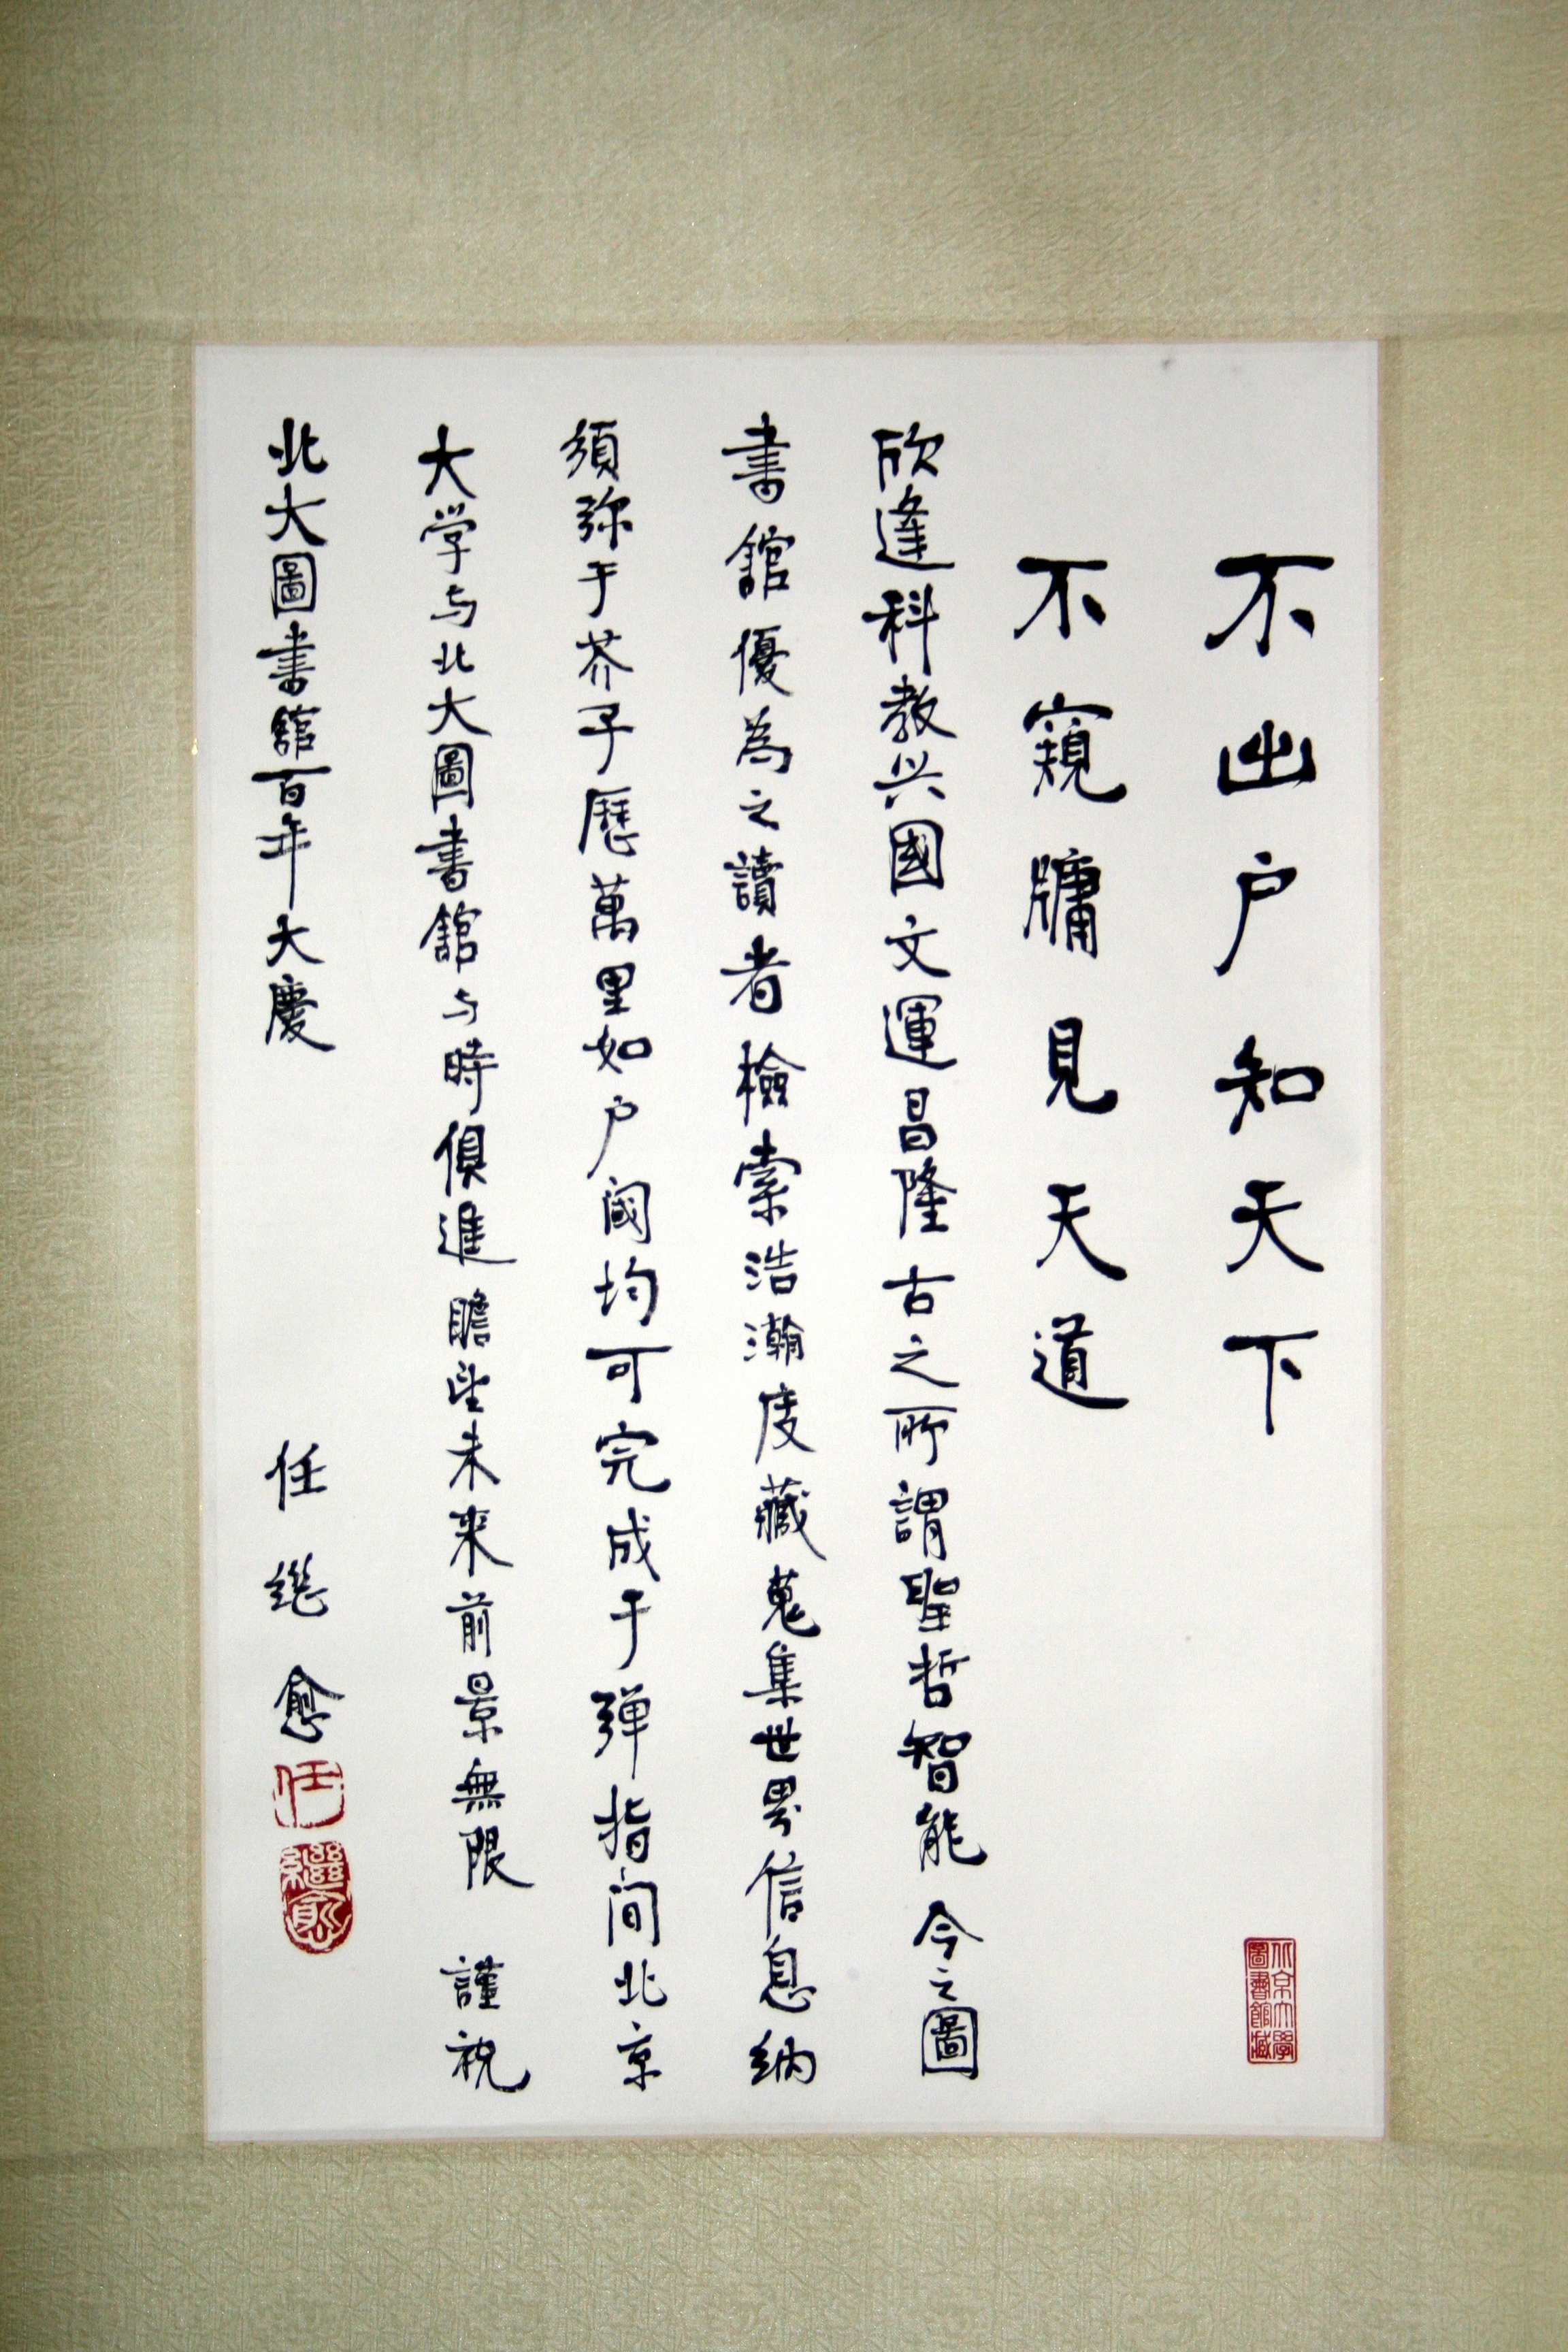 不出户知天下
不窺牖見天道
欣逢科教兴國文運昌隆古之所謂聖哲智能今之圖
書館優為之讀者檢索浩瀚庋藏蒐集世界信息納
須弥于芥子歷萬里如户閾均可完成于弹指间北京
大学与北大圖書館与時俱進瞻望未来前景無限 謹祝
北大圖書館百年大慶
任继愈
任
繼愈
北京大學
圖書館藏